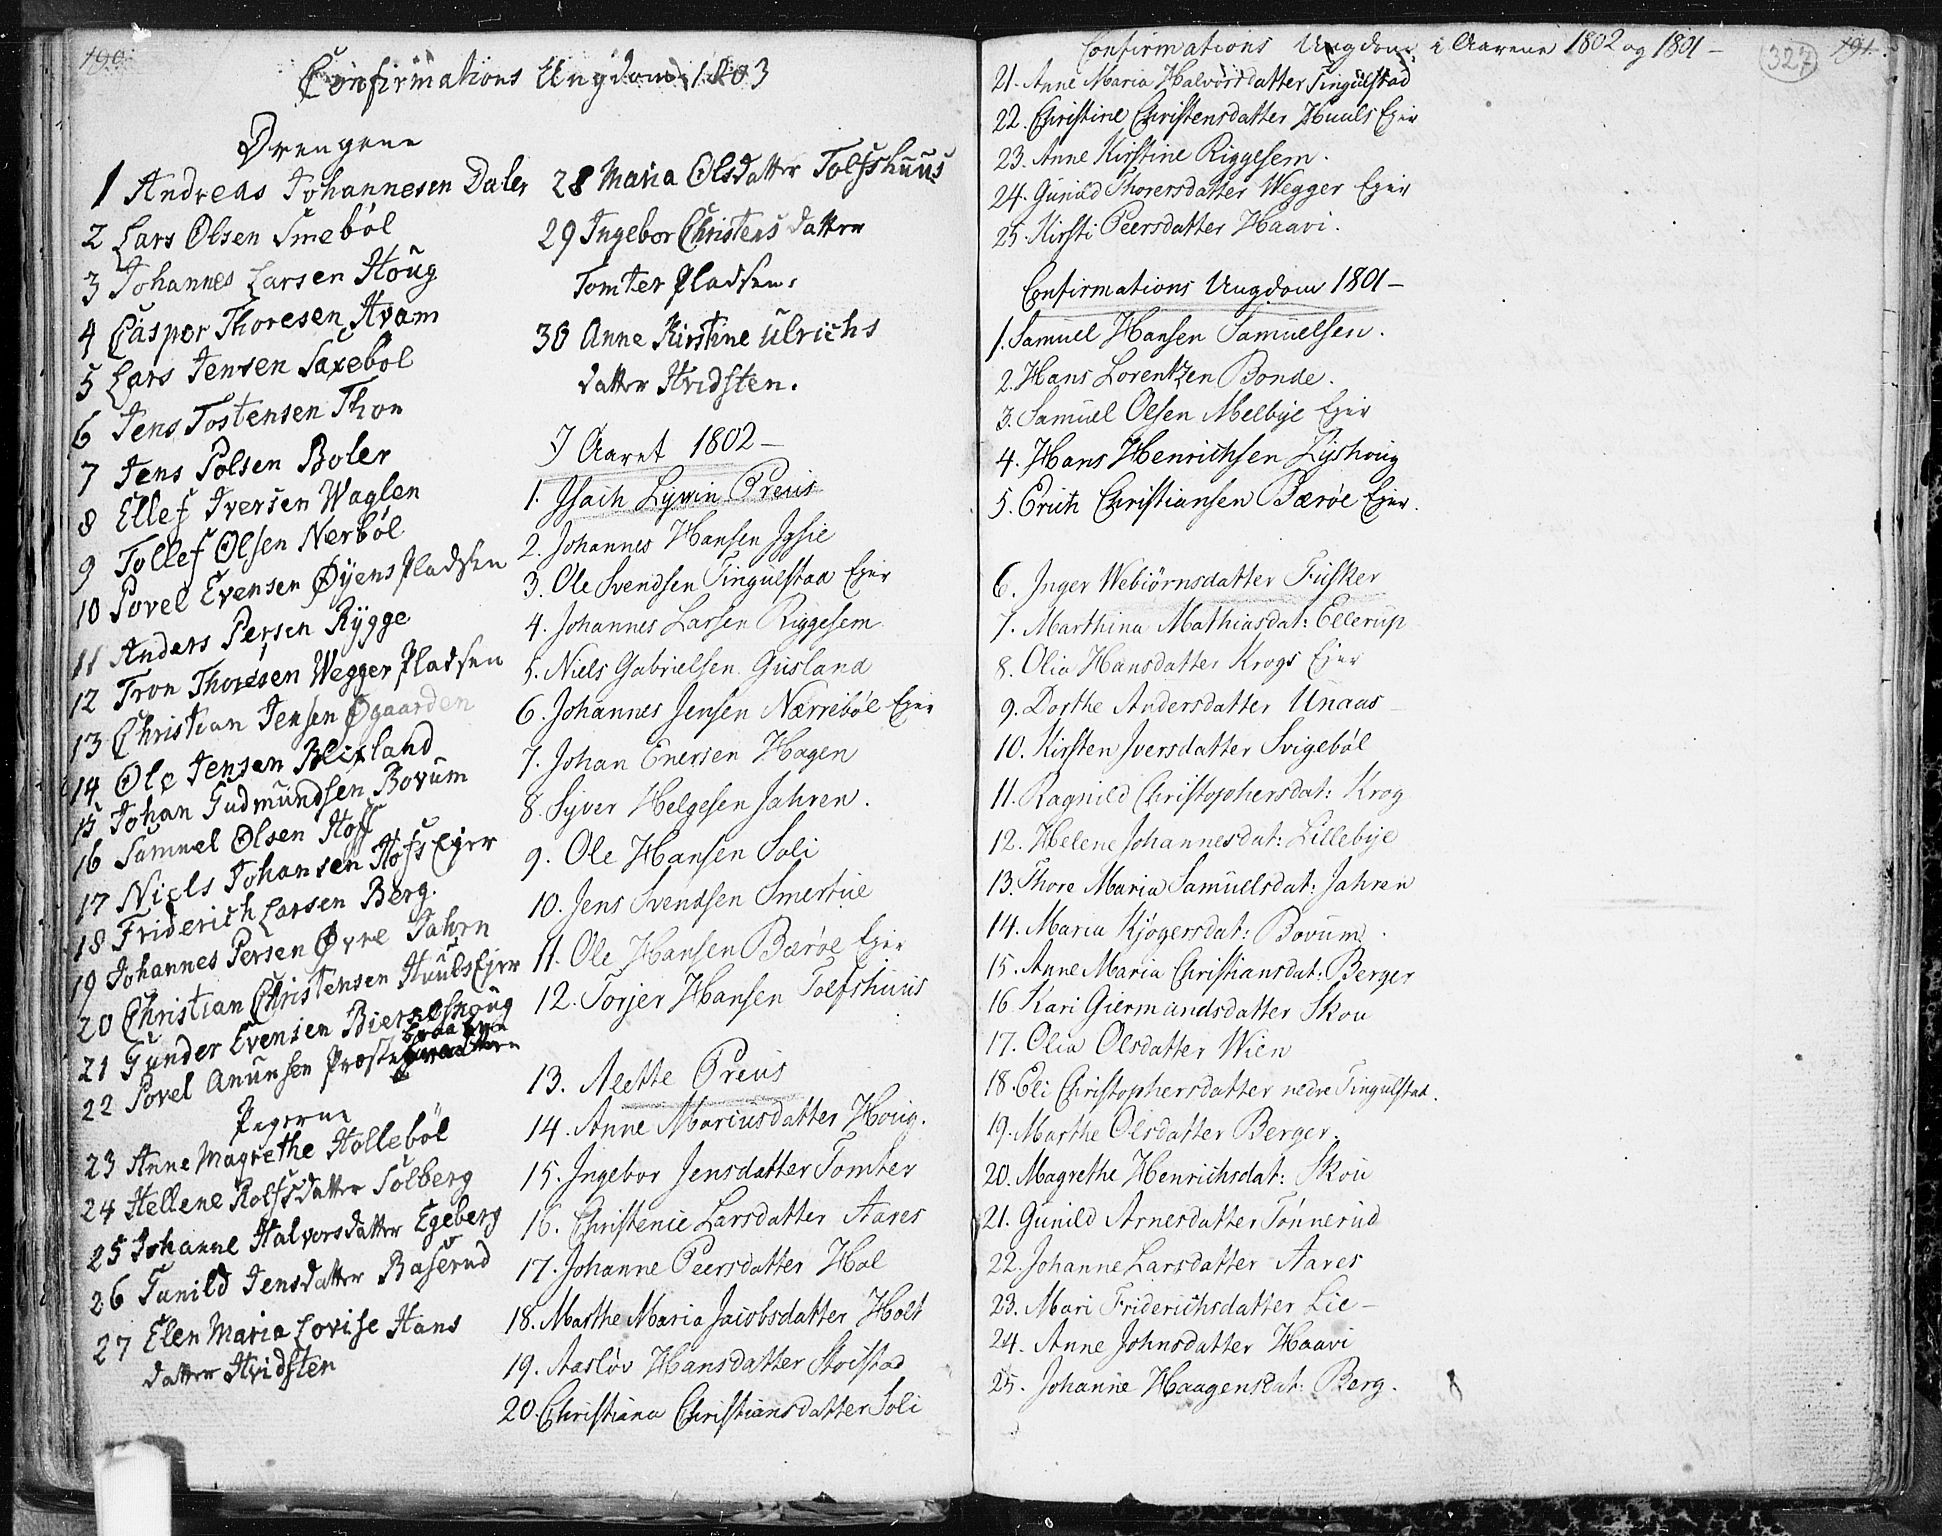 190.
Confirmations Ungdom 1803
Drengene
1 Andreas Johannesen Daler
2 Lars Olsen Smeböl
3 Johannes Larsen Houg
4 Casper Thoresen Hvam
5 Lars Jensen Saxeböl
6 Jens Tostensen Thon
7 Jens Polsen Boler
8 Ellef Iversen Waglen
9 Tollef Olsen Nerböl
10 Povel Evensen Øyens Pladsen
11 Anders Persen Rygge
12 Tron Thoresen Wegger Pladsen
13 Christian Jensen Øgaarden
14 Ole Jensen Blixland
15 Johan Gudmundsen Bovum
16 Samuel Olsen Hoff
17 Niels Johansen Hofs Ejer
18 Friderich Larsen Berg.
19 Johannes Persen Øvre Jahrn
20 Christian Christensen Huuls Ejer
21 Gunder Evensen Bierneshoug
22 Povel Anunsen Præste
Pigerne
23 Anne Magrethe Holleböl
24 Hellene Rolfsdatter Solberg
25 Johanne Halvorsdatter Egeberg
26 Gunild Jensdatter Baserud
27 Elen Maria Lovise Hans
datter Hvidsten
28 Maria Olsdatter Tolfshuus
29 Ingebor Christens datter
Tomter Pladsen.
30 Anne Kirstine Ulrichs
datter Hvidsten.
I Aaret 1802 –
1. Isach Lywin Preus
2. Johannes Hansen Igsie
3. Ole Svendsen Tingulstad Ejer
4. Johannes Larsen Riggesem
5. Niels Gabrielsen Gusland
6. Johannes Jensen Nærreböl Ejer
7. Johan Enersen Hagen
8. Syver Helgesen Jahren.
9. Ole Hansen Soli
10. Jens Svendsen Smertue
11. Ole Hansen Bærøe Ejer
12. Torjer Hansen Tolfshuus
13. Alette Preus
14. Anne Mariusdatter Houg.
15. Ingebor Jensdatter Tomter
16. Christenie Larsdatter Aares
17. Johanne Peersdatter Hol
18. Marthe Maria Jacobsdatter Holt
19. Aasløv Hansdatter
20. Christiana Christiansdatter Soli
Confirmations Ungdom i Aarene 1802 og 1801 –
327
191.
21. Anne Maria Halvorsdatter Tingulstad
22. Christine Christensdatter Huuls Ejer
23. Anne Kirstine Riggesem.
24. Gunild Thorersdatter Wegger Ejer
25. Kirsti Peersdatter Haavi.
Confirmations Ungdom 1801 –
1. Samuel Hansen Samuelsen.
2. Hans Lorentzen Bonde.
3. Samuel Olsen Melbye Ejer
4. Hans Henrichsen Lyshoug
5. Erich Christiansen Bærøe Ejer.
6. Inger Webiörnsdatter Fusker
7. Marthina Mathiasdat: Ellerup
8. Olia Hansdatter Krogs Ejer
9. Dorthe Andersdatter Unaas –
10. Kirsten Iversdatter Svigeböl
11. Ragnild Christophersdat: Krog
12. Helene Johannesdat: Lillebye
13. Thore Maria Samuelsdat: Jahren
14. Maria Kjögersdat: Bovum.
15. Anne Maria Christiansdat: Berger
16. Kari Giermundsdatter Skou
17. Olia Olsdatter Wien
18. Eli Christophersdatter nedre Tingulstad.
19. Marthe Olsdatter Berger.
20. Magrethe Henrichsdat: Skou
21. Gunild Arnesdatter Tönnerud
22. Johanne Larsdatter Aares
23. Mari Friderichsdatter Lie –
24. Anne Johnsdatter Haavi
25. Johanne Haagensdat: Berg.